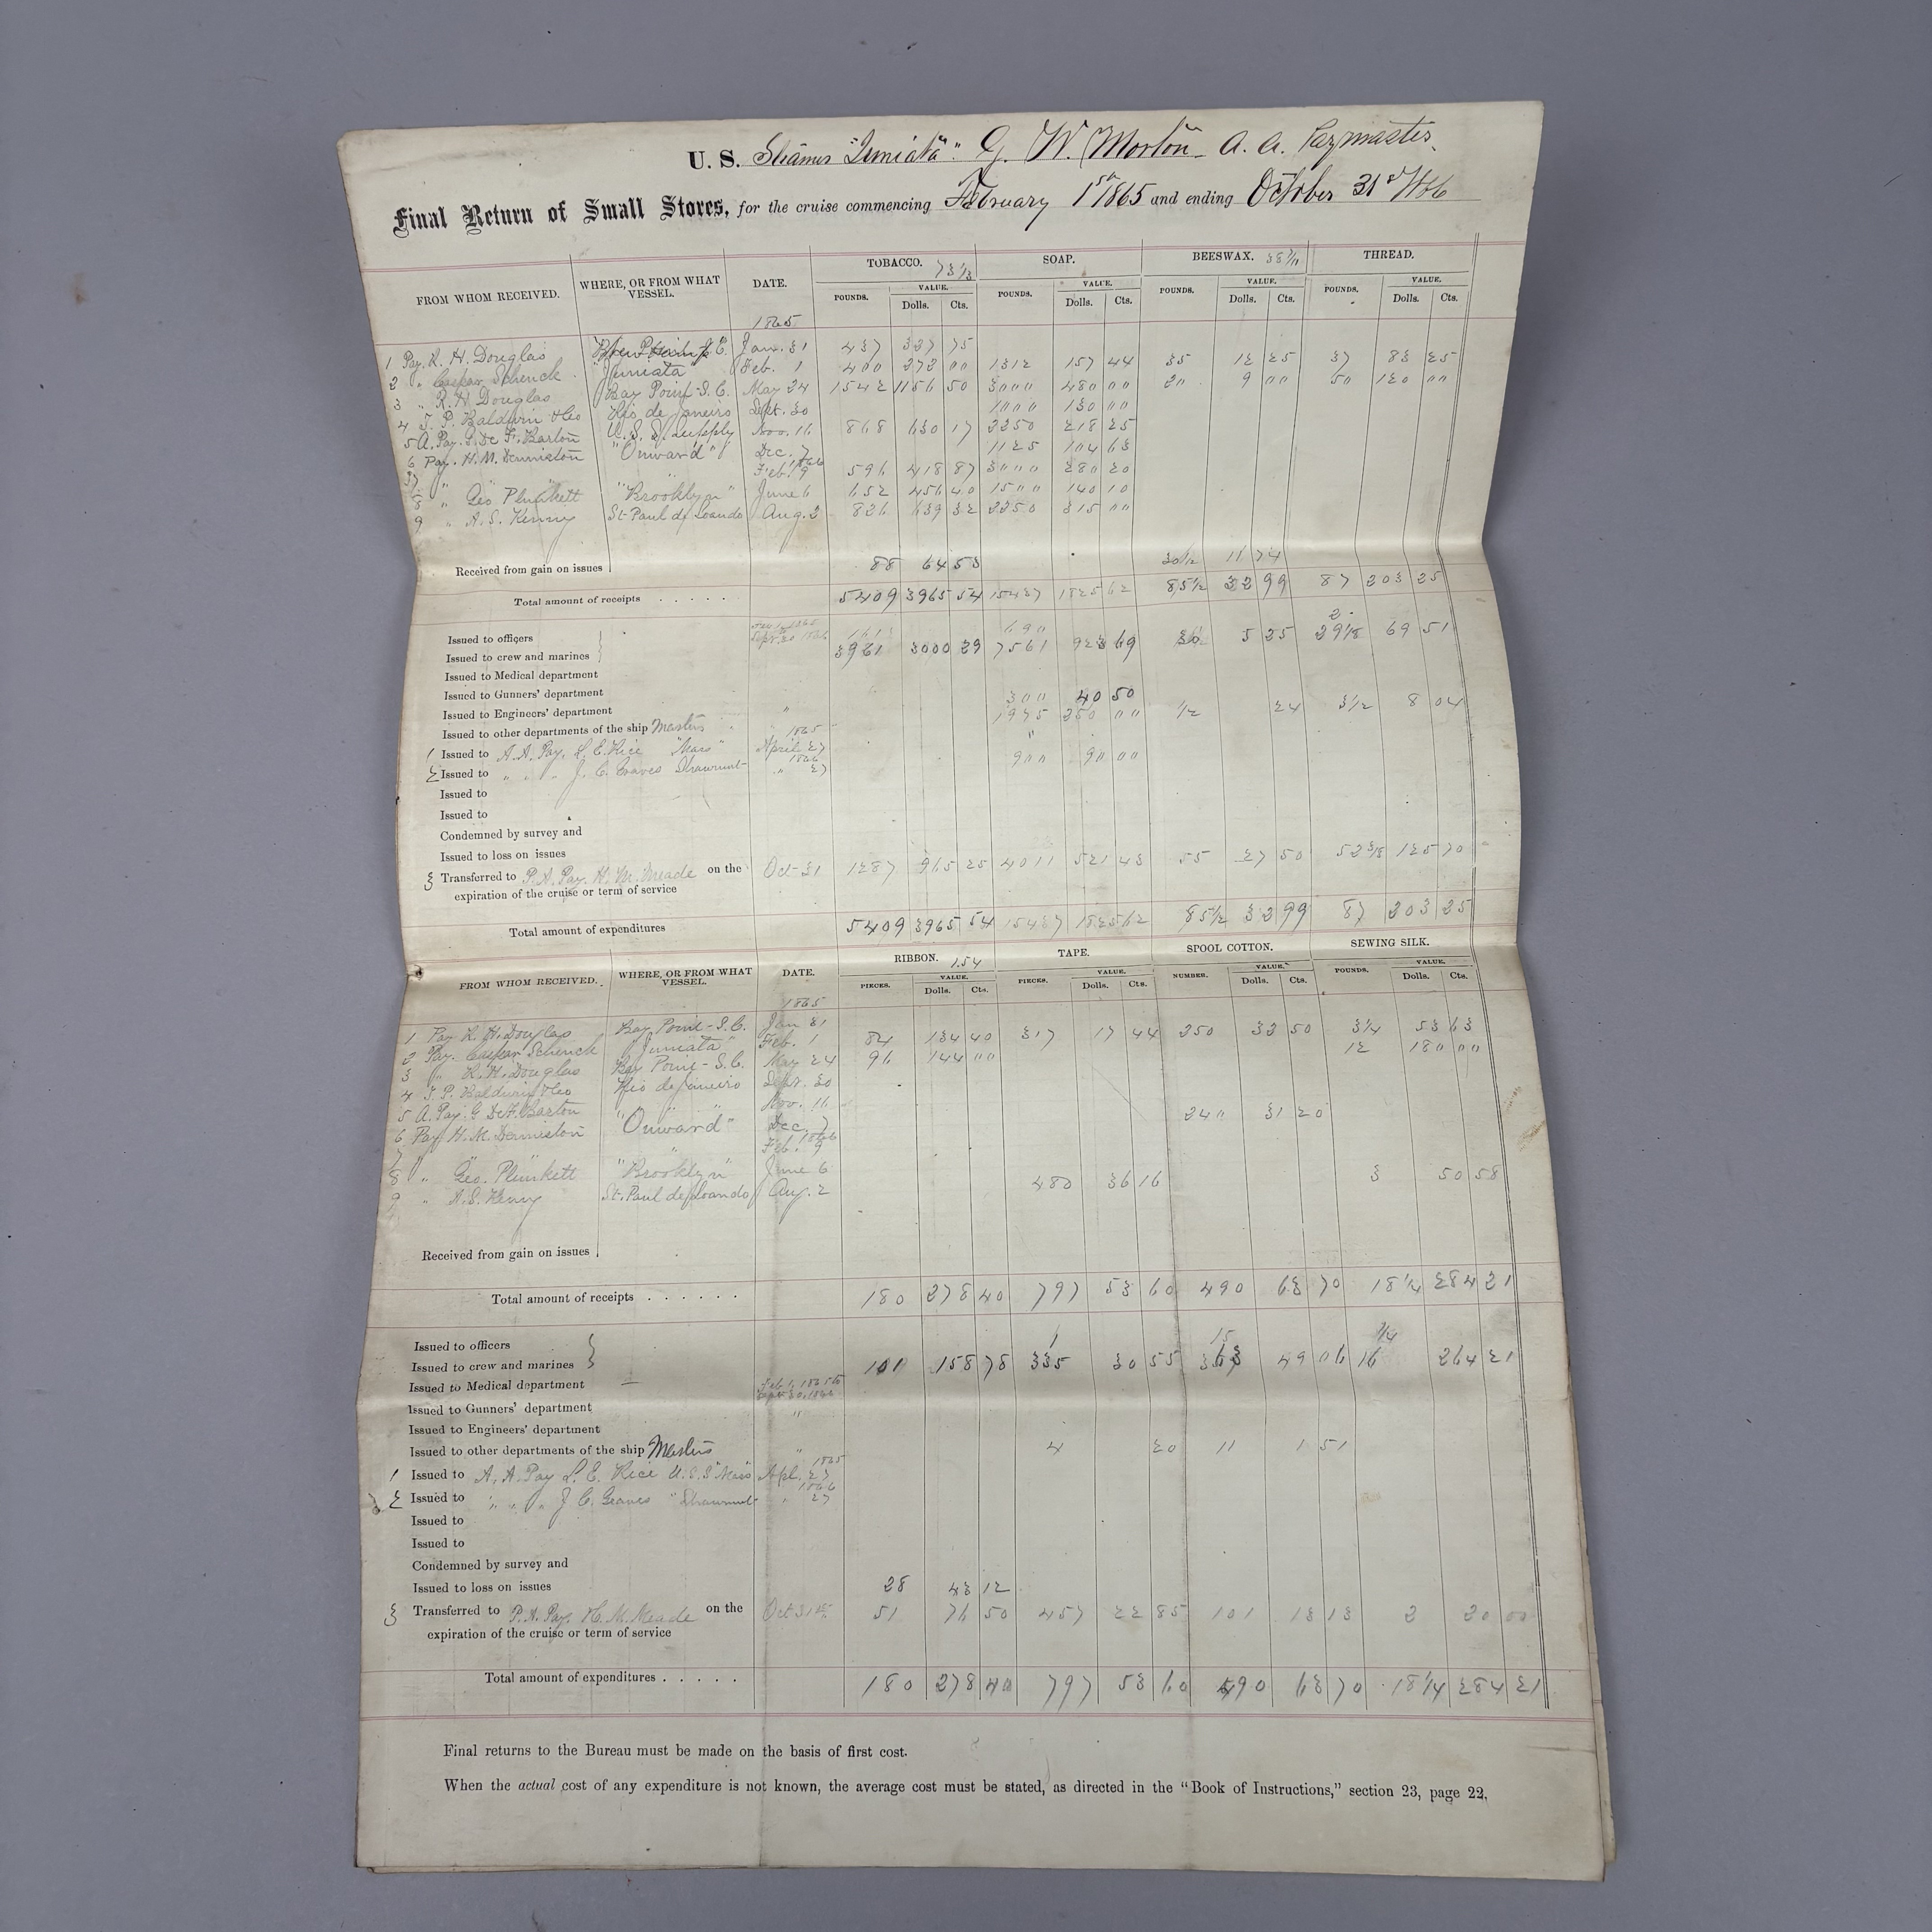 U. S. Steamer "Juniata". G. W. Morton A. A. Paymaster.
Final Return of Small Stores, for the cruise commencing February 1st 1865 and ending October 31st 1866
FROM WHOM RECEIVED. WHERE, OR FROM WHAT VESSEL. DATE. TOBACCO. 73 1/3 SOAP. BEESWAX. THREAD.
POUNDS. VALUE. Dolls. Cts. POUNDS. VALUE. Dolls. Cts. POUNDS. VALUE. Dolls. Cts. POUNDS. VALUE. Dolls. Cts.
1865
1 Pay. R. H. Douglas Jan. 31 437 327 75
2 " Caspar Schenck "Juniata" Feb. 1 400 272 00 1312 157 44 35 12 25 37 83 25
3 " R. H. Douglas Bay Point - S. C. May 24 1542 1156 50 3000 480 00 20 9 00 50 120 00
4 S. P. Baldwin & Co Rio de Janeiro Sept. 30 1000 130 00
5 A. Pay. G. De F. Barton U. S. S. Supply Nov. 16 868 630 17 2250 218 25
6 Pay. H. M. Denniston "Onward" Dec. 7 1125 104 63
7 " " " 1866 Feb. 9 596 418 87 3000 280 20
8 " Geo. Plunkett "Brooklyn" June 6 652 456 40 1500 140 10
9 " A. S. Kenny St. Paul de Loando Aug. 2 826 639 32 2250 315 00
Received from gain on issues 88 64 53 30 1/2 11 74
Total amount of receipts . . . . . . 5409 3965 54 15437 1825 62 85 1/2 32 99 87 203 25
Issued to officers
Issued to crew and marines 3961 3000 29 7561 923 69 5 25 29 1/8 69 51
Issued to Medical department
Issued to Gunners' department
Issued to Engineers' department 300 40 50
Issued to other departments of the ship Masters " 1975 250 00 1/2 24 3 1/2 8 04
1865
1 Issued to A. A. Pay. L. E. Rice "Mass" April 27
1866
2 Issued to " " " J. C. Graves Shawmut " 27 900 90 00
Issued to
Issued to
Condemned by survey and
Issued to loss on issues
3 Transferred to P. A. Pay. H. M. Meade on the Oct 31 1287 965 25 4011 521 43 55 27 50 125 70
expiration of the cruise or term of service
Total amount of expenditures 5409 3965 54 15437 1825 62 85 1/2 32 99 87 203 25
FROM WHOM RECEIVED. WHERE, OR FROM WHAT VESSEL. DATE. RIBBON. 1.54 TAPE. SPOOL COTTON. SEWING SILK.
PIECES. VALUE. Dolls. Cts. PIECES. VALUE. Dolls. Cts. NUMBER. VALUE. Dolls. Cts. POUNDS. VALUE. Dolls. Cts.
1865
1 Pay R. H. Douglas Bay Point - S. C. Jan 31
2 Pay. Caspar Schenck "Juniata" Feb. 1 84 134 40 317 17 44 250 32 50 3 1/4 53 63
3 " R. H. Douglas Bay Point - S. C. May 24 96 144 00 12 180 00
4 S. P. Baldwin & Co Rio de Janeiro Sept. 30
5 A. Pay. G De F. Barton " " " Nov. 16
6 Pay H. M. Denniston "Onward" Dec. 7 240 31 20
7 " " " 1866 Feb. 9
8 " Geo. Plunkett "Brooklyn" June 6
9 " A. S. Kenny St. Paul de Loando Aug. 2 480 36 16 3 50 58
Received from gain on issues
Total amount of receipts . . . . . . 180 278 40 797 53 60 490 63 70 18 1/4 284 21
Issued to officers 1 15
Issued to crew and marines 101 158 78 335 30 55 363 49 06 16 264 21
Issued to Medical department Feb. 1, 1865 to Sept. 30, 1866
Issued to Gunners' department "
Issued to Engineers' department
Issued to other departments of the ship Masters " 4 20 11 1 51
1865
1 Issued to A. A. Pay L. E. Rice U.S.S "Mass" Apl. 27
1866
2 Issued to " " " J. C. Graves "Shawmut " 27
Issued to
Issued to
Condemned by survey and
Issued to loss on issues 28 43 12
3 Transferred to P. A. Pay. H. M. Meade on the Oct 31st 51 76 50 457 22 85 101 13 13 2 20 00
expiration of the cruise or term of service
Total amount of expenditures . . . . . 180 278 40 797 53 60 490 63 70 18 1/4 284 21
Final returns to the Bureau must be made on the basis of first cost.
When the actual cost of any expenditure is not known, the average cost must be stated, as directed in the "Book of Instructions," section 23, page 22.